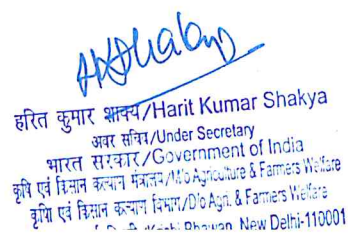 हरित कुमार शाक्य/Harit Kumar Shakya
अवर सचिव/Under Secretary
भारत सरकार/Government of India
कृषि एवं किसान कल्याण मंत्रालय/M/o Agriculture & Farmers Welfare
कृषि एवं किसान कल्याण विभाग/D/o Agri. & Farmers Welfare
Bhawan, New Delhi-110001